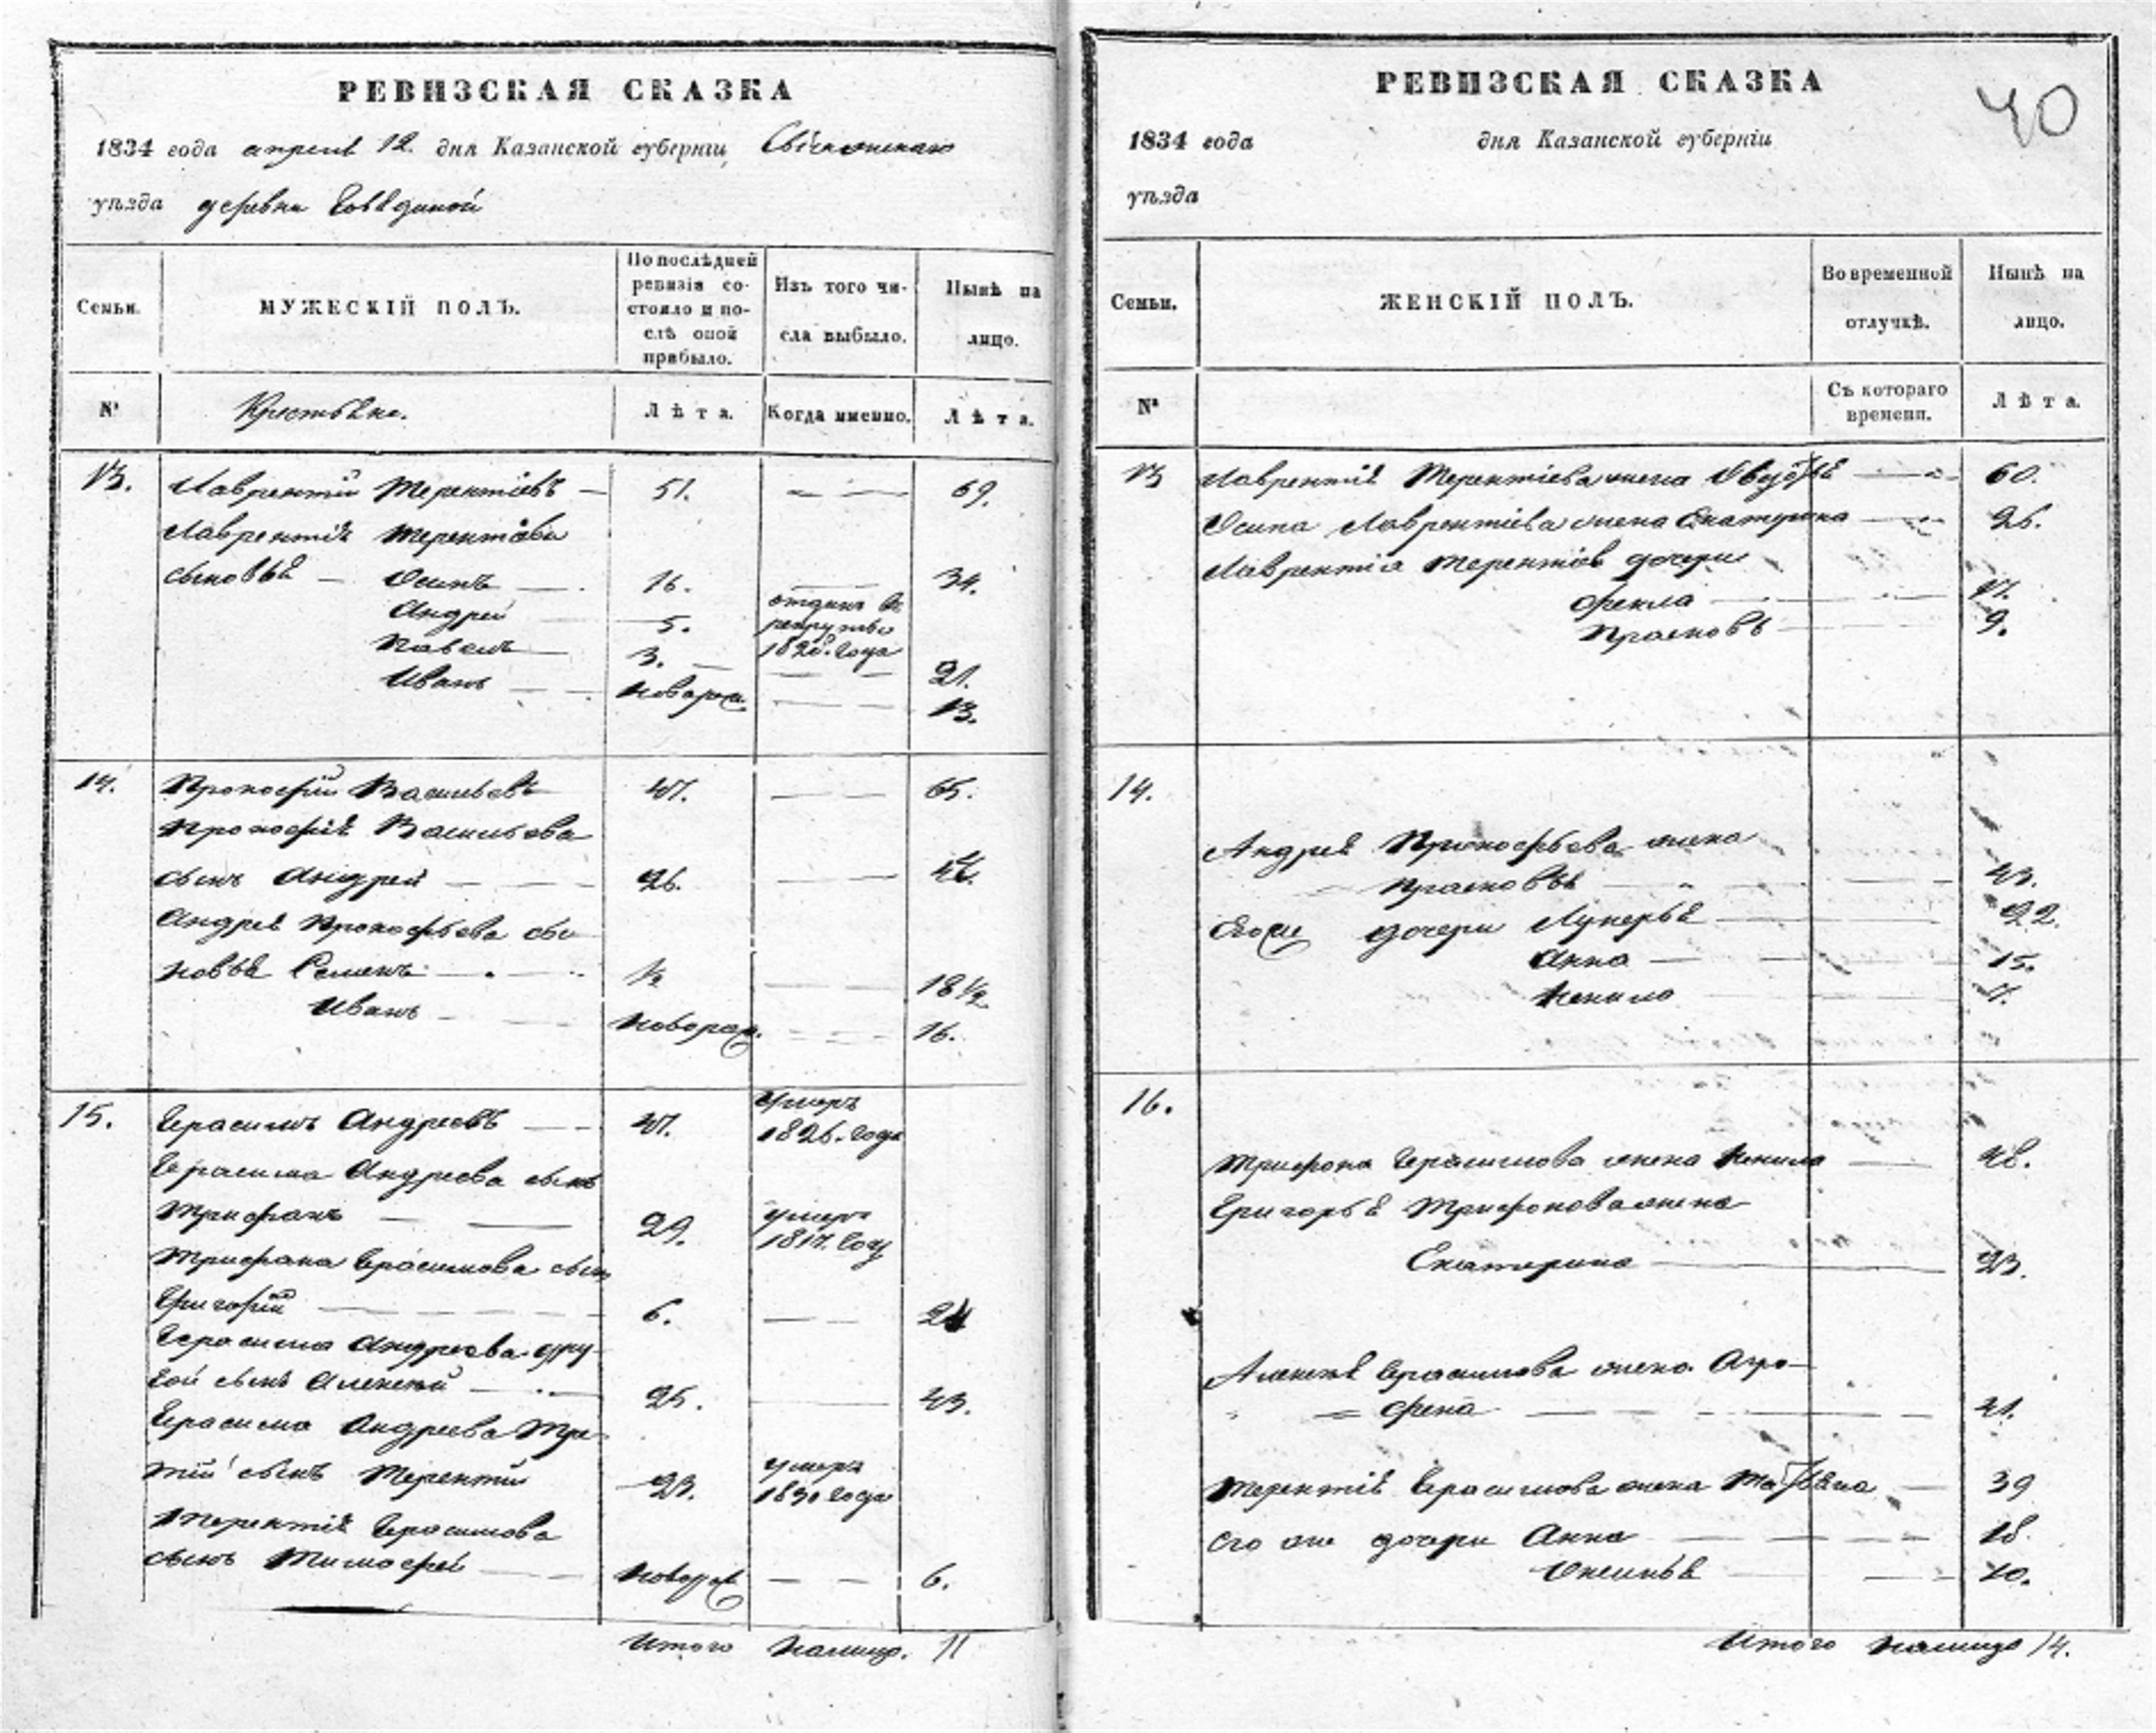 РЕВИЗСКАЯ СКАЗКА
1834 года апреля 12. дня Казанской губерніи,
уѣзда деревни
Семьи.
МУЖЕСКІЙ ПОЛЪ.
По послѣдней ревизіи со-
стояло и по-
слѣ оной
прибыло.
Изъ того чи-
сла выбыло.
Нынѣ на
лицо.
№
Крестьяне.
Лѣта.
Когда именно.
Лѣта.
13. Лаврентій Терентіевъ — 51. — — 69.
Лаврентія Терентіева
сыновья — Осипъ — 16. — 34.
Андрей — 5. отданъ въ рекруты 1828. года
Павелъ — 3. — — 21.
Иванъ — новорож. — — 13.
14. Прокофій Васильевъ 47. — — 65.
Прокофія Васильева
сынъ Андрей — — 26. — — 44.
Андрея Прокофьева сы-
новья Семенъ — 1/2 — — 18 1/2
Иванъ — новорож. — — 16.
15. Герасимъ Андреевъ — 47. умеръ 1826. года
Герасима Андреева сынъ
Трифонъ — — 29. умеръ 1817. году
Трифона Герасимова сынъ
Григорій — — 6. — — 24
Герасима Андреева дру-
гой сынъ Алексей — 25. — 43.
Герасима Андреева тре-
тій сынъ Терентій 23. умеръ 1831 года
Терентія Герасимова
сынъ Тимофей — новорож — — 6.
Итого налицо. 11
РЕВИЗСКАЯ СКАЗКА
40
1834 года дня Казанской губерніи
уѣзда
Семьи.
ЖЕНСКІЙ ПОЛЪ.
Во временной
отлучкѣ.
Нынѣ на
лицо.
№
Съ котораго
времени.
Лѣта.
13 Лаврентія Терентіева жена Авдотья — 60.
Осипа Лаврентіева жена Екатерина — 26.
Лаврентія Терентіева дочери
Фекла — 17.
Прасковья — 9.
14.
Андрея Прокофьева жена
Прасковья — 43.
Его же дочери Лукерья — 22.
Анна — 15.
Ненила — 7.
16.
Трифона Герасимова жена Ненила — 48.
Григорья Трифонова жена
Екатерина — 23.
Алексея Герасимова жена Агро-
фена — 41.
Терентія Герасимова жена Татьяна — 39
его же дочери Анна — 18.
Аксинья — 10.
Итого налицо 14.